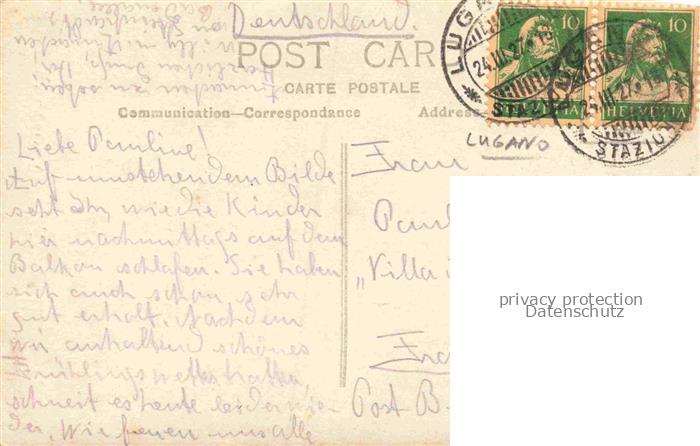 Deutschland.
POST CAR
CARTE POSTALE
Communication—Correspondance
Address
LUGANO
24.III.27
STAZIO
10
HELVETIA
10
HELVETIA
24.III.27
STAZIO
LUGANO
Liebe Pauline!
Auf umstehendem Bilde
seht Ihr, wie die Kinder
hier nachmittags auf dem
Balkon schlafen. Sie haben
sich auch schon sehr
gut erholt. Nachdem
wir anhaltend schönes
Frühlingswetter hatten
schneit es heute leider wie-
der. Wir freuen uns alle
Frau
Paul
"Villa
Post B
privacy protection
Datenschutz